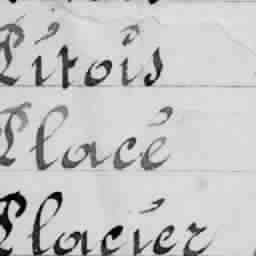 Pitois
Placé
Placier